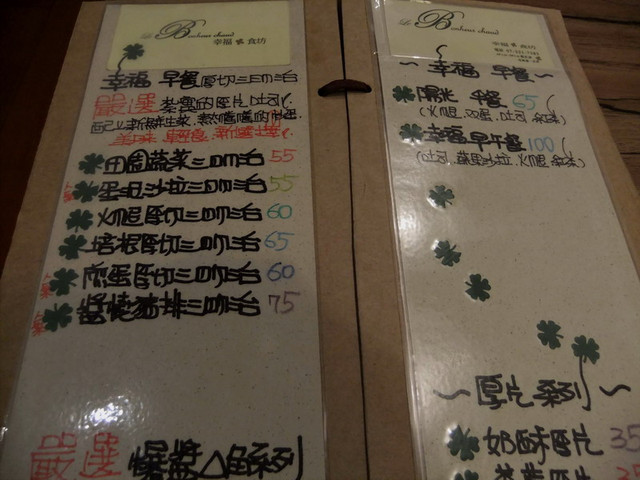 Le Bonheur chaud
幸福 食坊
幸福 早餐厚切三明治
嚴選 柔軟的厚片吐司
配上新鮮生菜.
美味.輕食.新選擇
田園蔬菜三明治 55
蛋沙拉三明治 55
火腿厚切三明治 60
培根厚切三明治 65
煎蛋厚切三明治 60
醬燒豬排三明治 75
嚴選 爆漿△角系列
Le Bonheur chaud
幸福 食坊
~幸福 早餐~
陽光 早餐 65
(火腿.双蛋.吐司.飲料)
幸福早午餐 100
(吐司.蔬果沙拉.火腿.飲料)
~厚片系列~
奶酥厚片 35
厚片 35